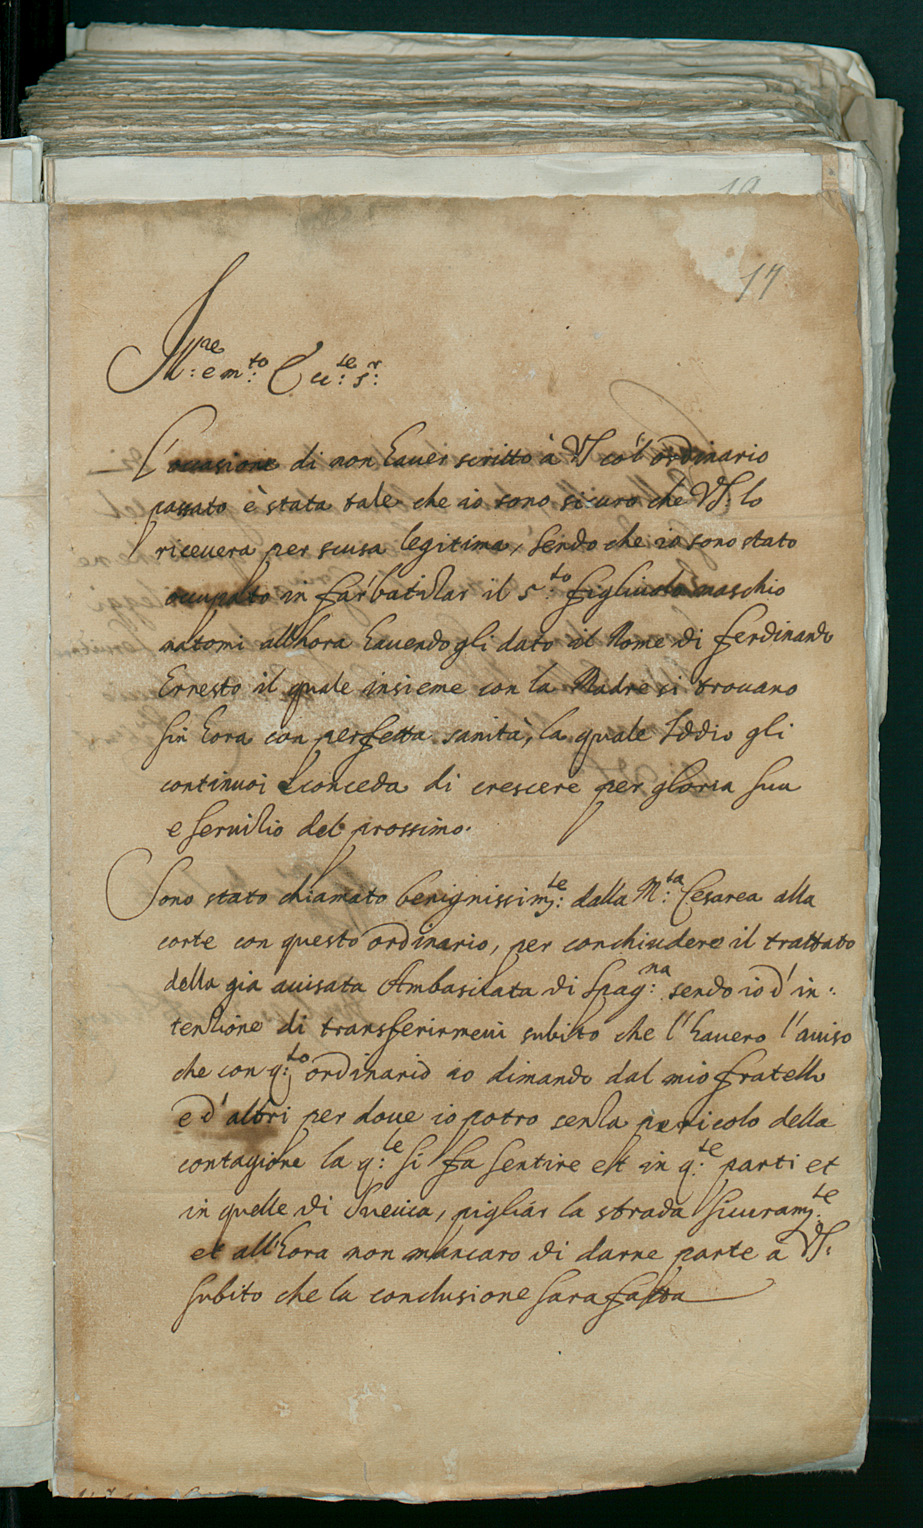 17
Ill:re e m:to Ecc:te S:r
L'occasione di non haver scritto à VS co'l ordinario
passato è stata tale che io sono sicuro che VS. lo
ricevera per scusa legitima, sendo che io sono stato
occupato in far batizar il 5:to figliuolo maschio
natomi all'hora havendogli dato il Nome di Ferdinando
Ernesto il quale insieme con la Madre si trovano
sin hora con perfetta sanità, la quale Iddio gli
continuoi e conceda di crescere per gloria sua
e servizio del prossimo.
Sono stato chiamato benignissim:te dalla M:ta Cesarea alla
corte con questo ordinario, per conchiudere il trattato
della gia avisata Ambasciata di Spag:na sendo io d'in:
tenzione di transferirmevi subito che l'havero l'aviso
che con q:to ordinario io dimando dal mio fratello
e d'altri per dove io potro senza pericolo della
contagione la q:le si fa sentire et in q:te parti et
in quelle di Suevia, pigliar la strada sicuram:te
et all'hora non mancaro di darne parte a VS:
subito che la conclusione sara fatta